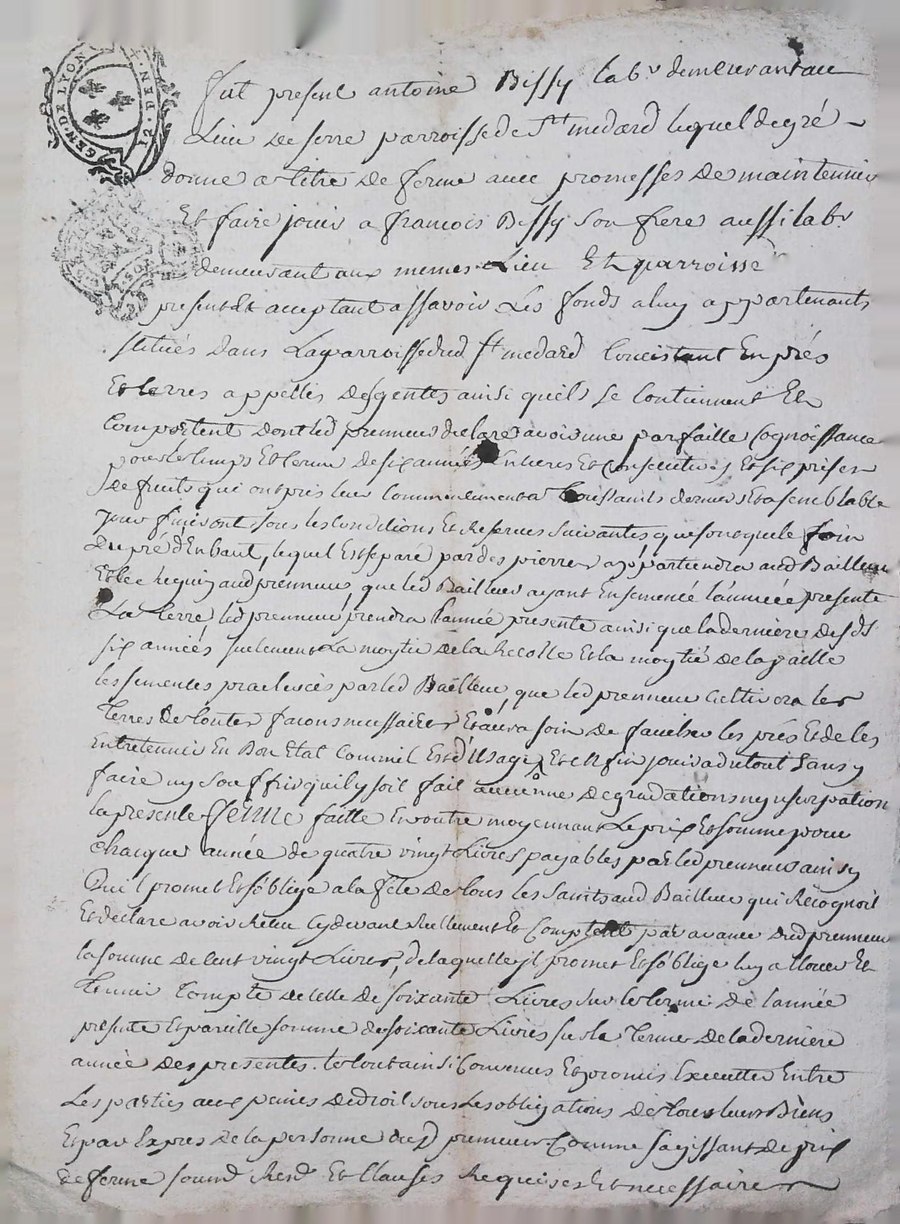 GEN. DE LYON
12 DEN.
fut present antoine Bissy lab.r demeurant au
Lieu De serre parroisse de S.tt medard lequel de gré
donne a titre De ferme avec promesses De maintennir
Et faire jouir a francois Bissy Son frere aussi lab.r
demeurant aux memes Lieu Et parroisse
present Et acceptant assavoir Les fonds a luy appartenants
situés dans La parroisse dud S.t medard Concistant En prés
Et terres appellés desgentes ainsi quils Se Contiennent Et
Comportent dont led prenneur declare avoir une parfaitte Cognoissance
pour le temps Et terme de six années Entieres Et Consecutives Et six prises
De fruits qui ont pris leur Commencement a toussaints dernier Et a semblable
jour finiront sous les Conditions Et Reserves Suivantes que le foin
Du pré d'Enhaut, lequel Est separé par des pierres appartiendra aud Bailleur
Et le aud prenneur, que led Bailleur ayant Ensemencé l'année presente
La terre led prenneur prendra l'année presente ainsi que la derniere desds
six années seulement La moytié de la Recolte Et la moytié de la paille
les semences par led Bailleur, que led prenneur Cultivera les
Terres De toutes facons necessaires Et aura soin De faucher les prés Et de les
Entretennir En Bon Etat Comme il Est d'Usage, Et Enfin jouira du tout Sans y
faire ny Souffrir quil y soit fait aucunne Degradations ny usurpation
la presente ferme faitte En outre moyennant Le prix Et somme pour
chacque année de quatre vingt Livres payables par led prenneur ainsy
Qu'il promet Et s'oblige a la fête De tous les Saints aud Bailleur qui Recognoit
Et declare avoir Receu Cy devant Reellement Et Comptant par avance Dud prenneur
la somme de Cent vingt Livres, de laquelle il promet Et s'oblige luy allouer Et
Tennir Compte de Celle De soixante Livres sur le terme de l'année
presente Et pareille somme de soixante Livres sur le Terme De la derniere
année Des presentes. le tout ainsi Convenus Et promis Executter Entre
Les parties aux peines De droit sous Les obligations de tous leurs Biens
Et par Expres De la personne dud prenneur Comme s'agissant de prix
de ferme soum.d Ren.d Et Clauses Requises Et necessaires